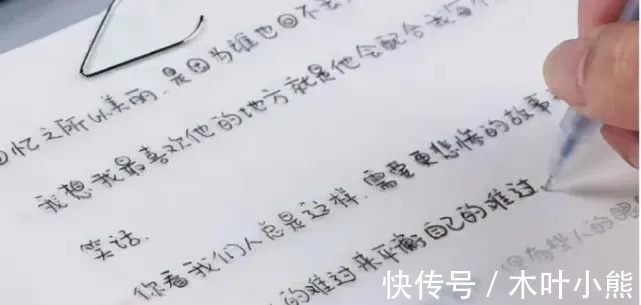 回忆之所以美丽.是因为谁也回不去
我想我最喜欢他的地方就是他会配合我每个
笑话.
你看我们人总是这样.需要更悲惨的故事
的难过来平衡自己的难过.
但有些人的眼
快传号 / 木叶小熊